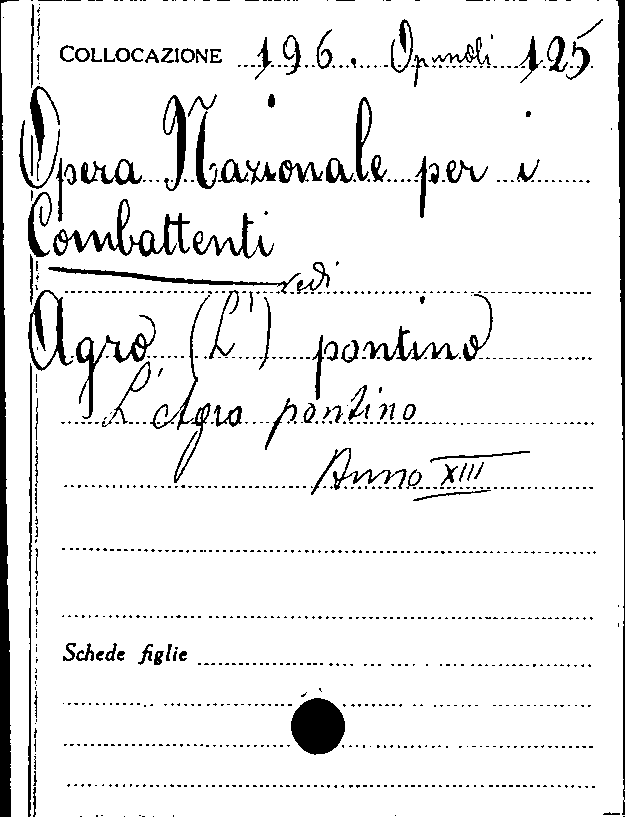 COLLOCAZIONE 196. Opuscoli 125
Opera Nazionale per i
Combattenti
vedi
Agro (L') pontino
L'Agro pontino
Anno XIII
Schede figlie